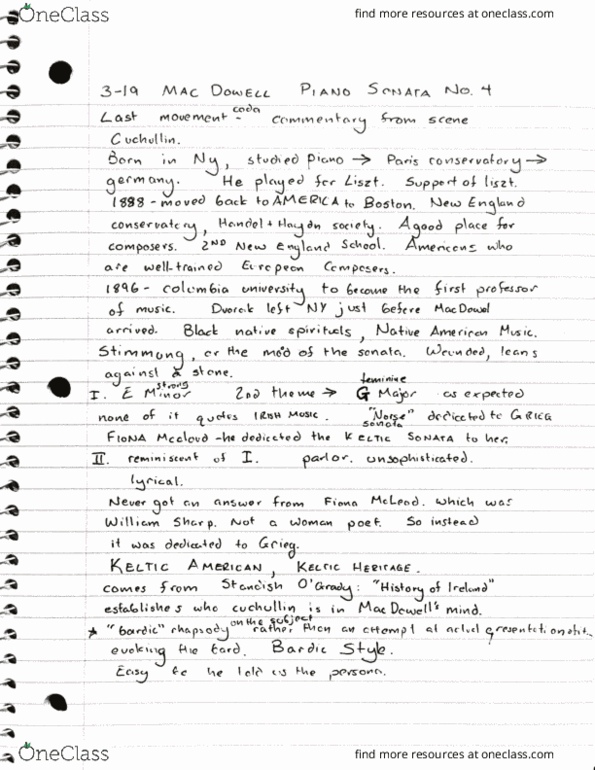 OneClass
find more resources at oneclass.com
3-19 MAC DOWELL PIANO SONATA NO. 4
Last movement - coda commentary from scene
Cuchullin.
Born in Ny, studied piano → Paris conservatory →
germany. He played for Liszt. Support of liszt.
1888 - moved back to AMERICA to Boston. New England
conservatory, Handel + Haydn society. A good place for
composers. 2ND New England School. Americans who
are well-trained European Composers.
1896 - columbia university to become the first professor
of music. Dvorak left NY just before MacDowel
arrived. Black native spirituals, Native American Music.
Stimmung, or the mood of the sonata. Wounded, leans
against a stone.
I. E Minor strong 2nd theme → G Major feminine as expected
none of it quotes IRISH MUSIC. "Norse" sonata dedicated to GRIEG
FIONA Mccloud - he dedicated the KELTIC SONATA to her.
II. reminiscent of I. parlor. unsophisticated.
lyrical.
Never got an answer from Fiona McLeod. which was
William Sharp. Not a woman poet. So instead
it was dedicated to Grieg.
KELTIC AMERICAN, KELTIC HERITAGE.
comes from Standish O'Grady: "History of Ireland"
establishes who cuchullin is in MacDowell's mind.
* "bardic" rhapsody on the subject rather than an attempt at actual presentation of it..
evoking the bard. Bardic Style.
Easy be he told as the persona.
OneClass
find more resources at oneclass.com